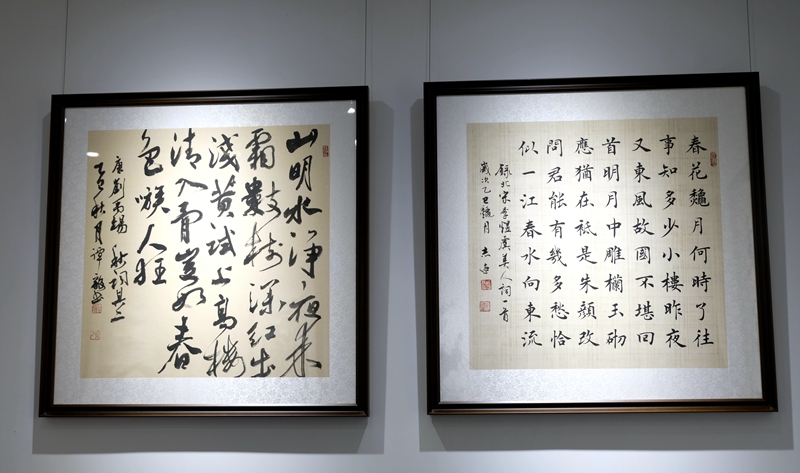 山明水浄夜来
霜數树深红出
淺黄试上高楼
清入骨豈如春
色嗾人狂
唐刘禹锡 秋词其二
乙巳秋月 谭
春花龝月何時了往
事知多少小樓昨夜
又東風故國不堪回
首明月中雕欄玉砌
應猶在祗是朱顏改
問君能有幾多愁恰
似一江春水向東流
錄北宋李煜虞美人詞一首
歲次乙巳龝月